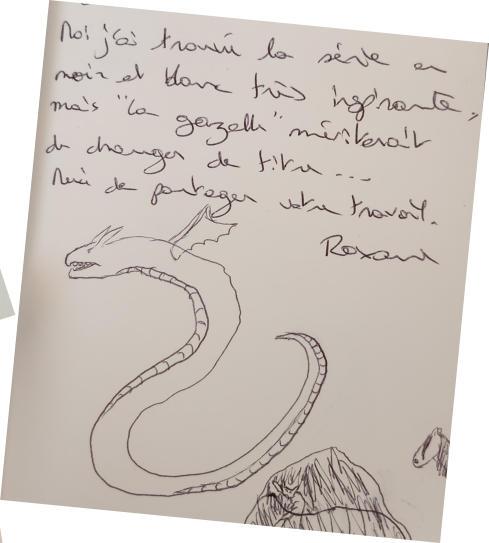 Moi j'ai trouvé la série en
noir et blanc très inspirante,
mais "la gazelle" mériterait
de changer de titre ...
Merci de partager votre travail.
Roxane